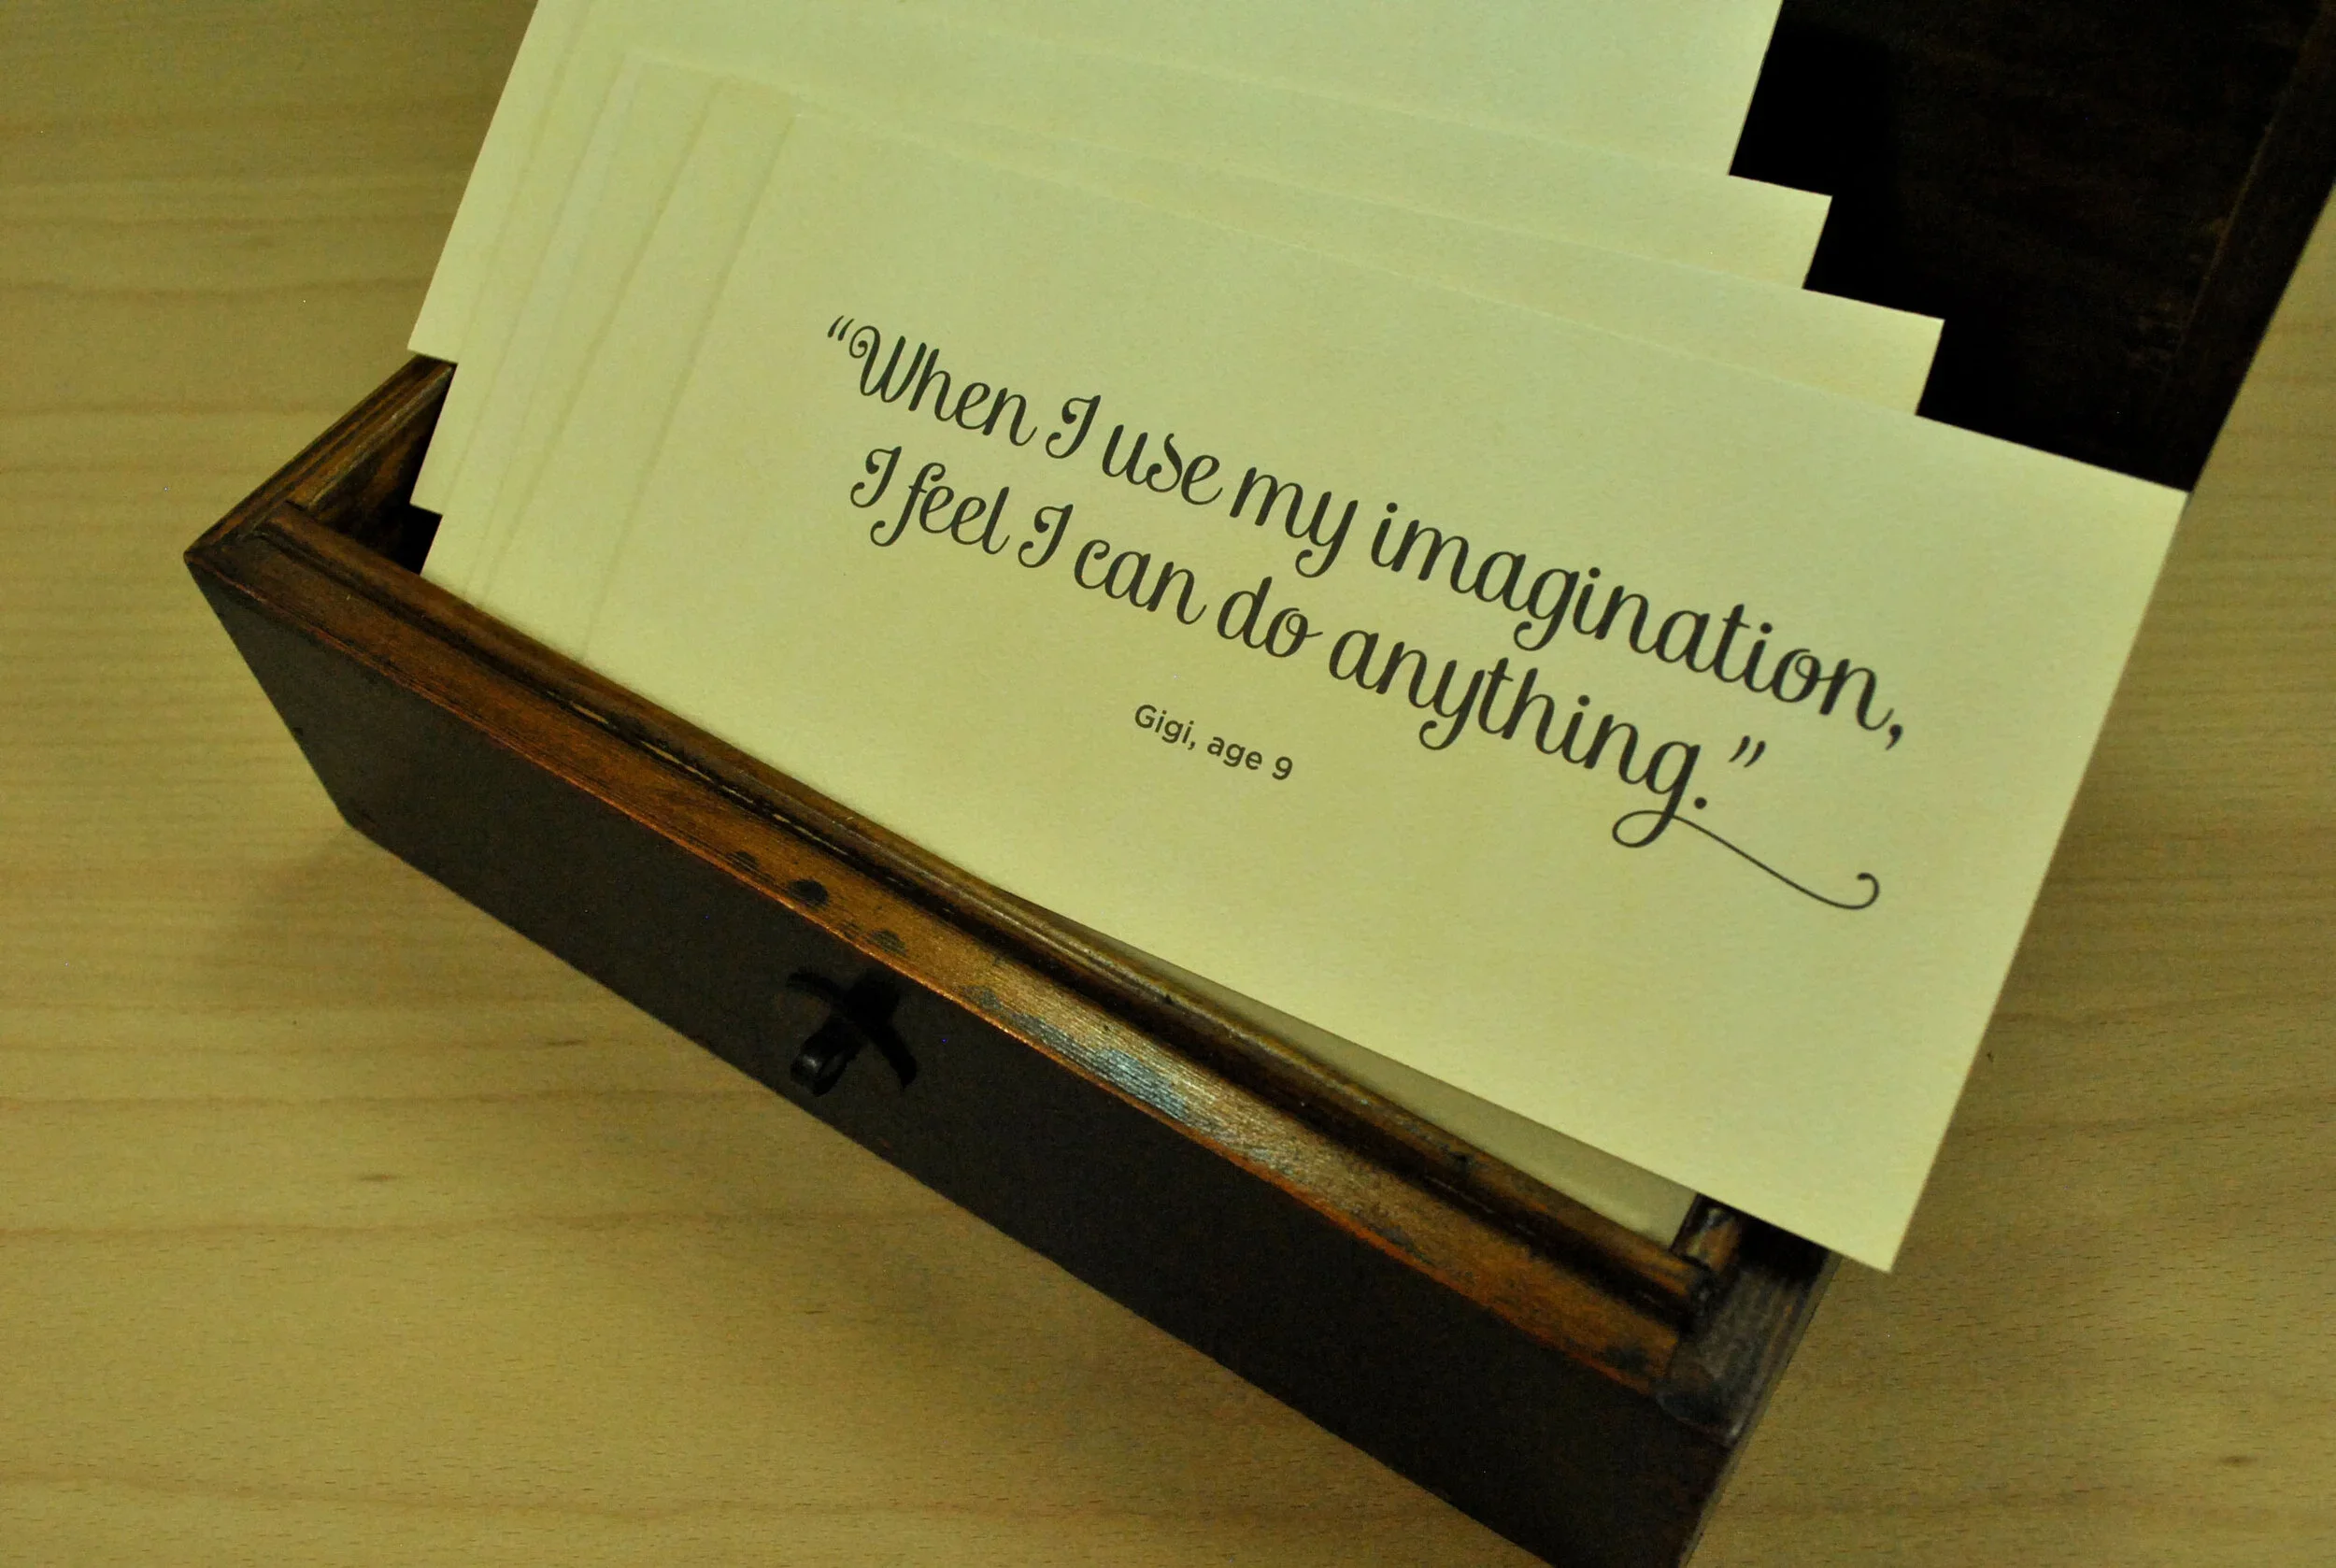 “When I use my imagination,
I feel I can do anything.”
Gigi, age 9